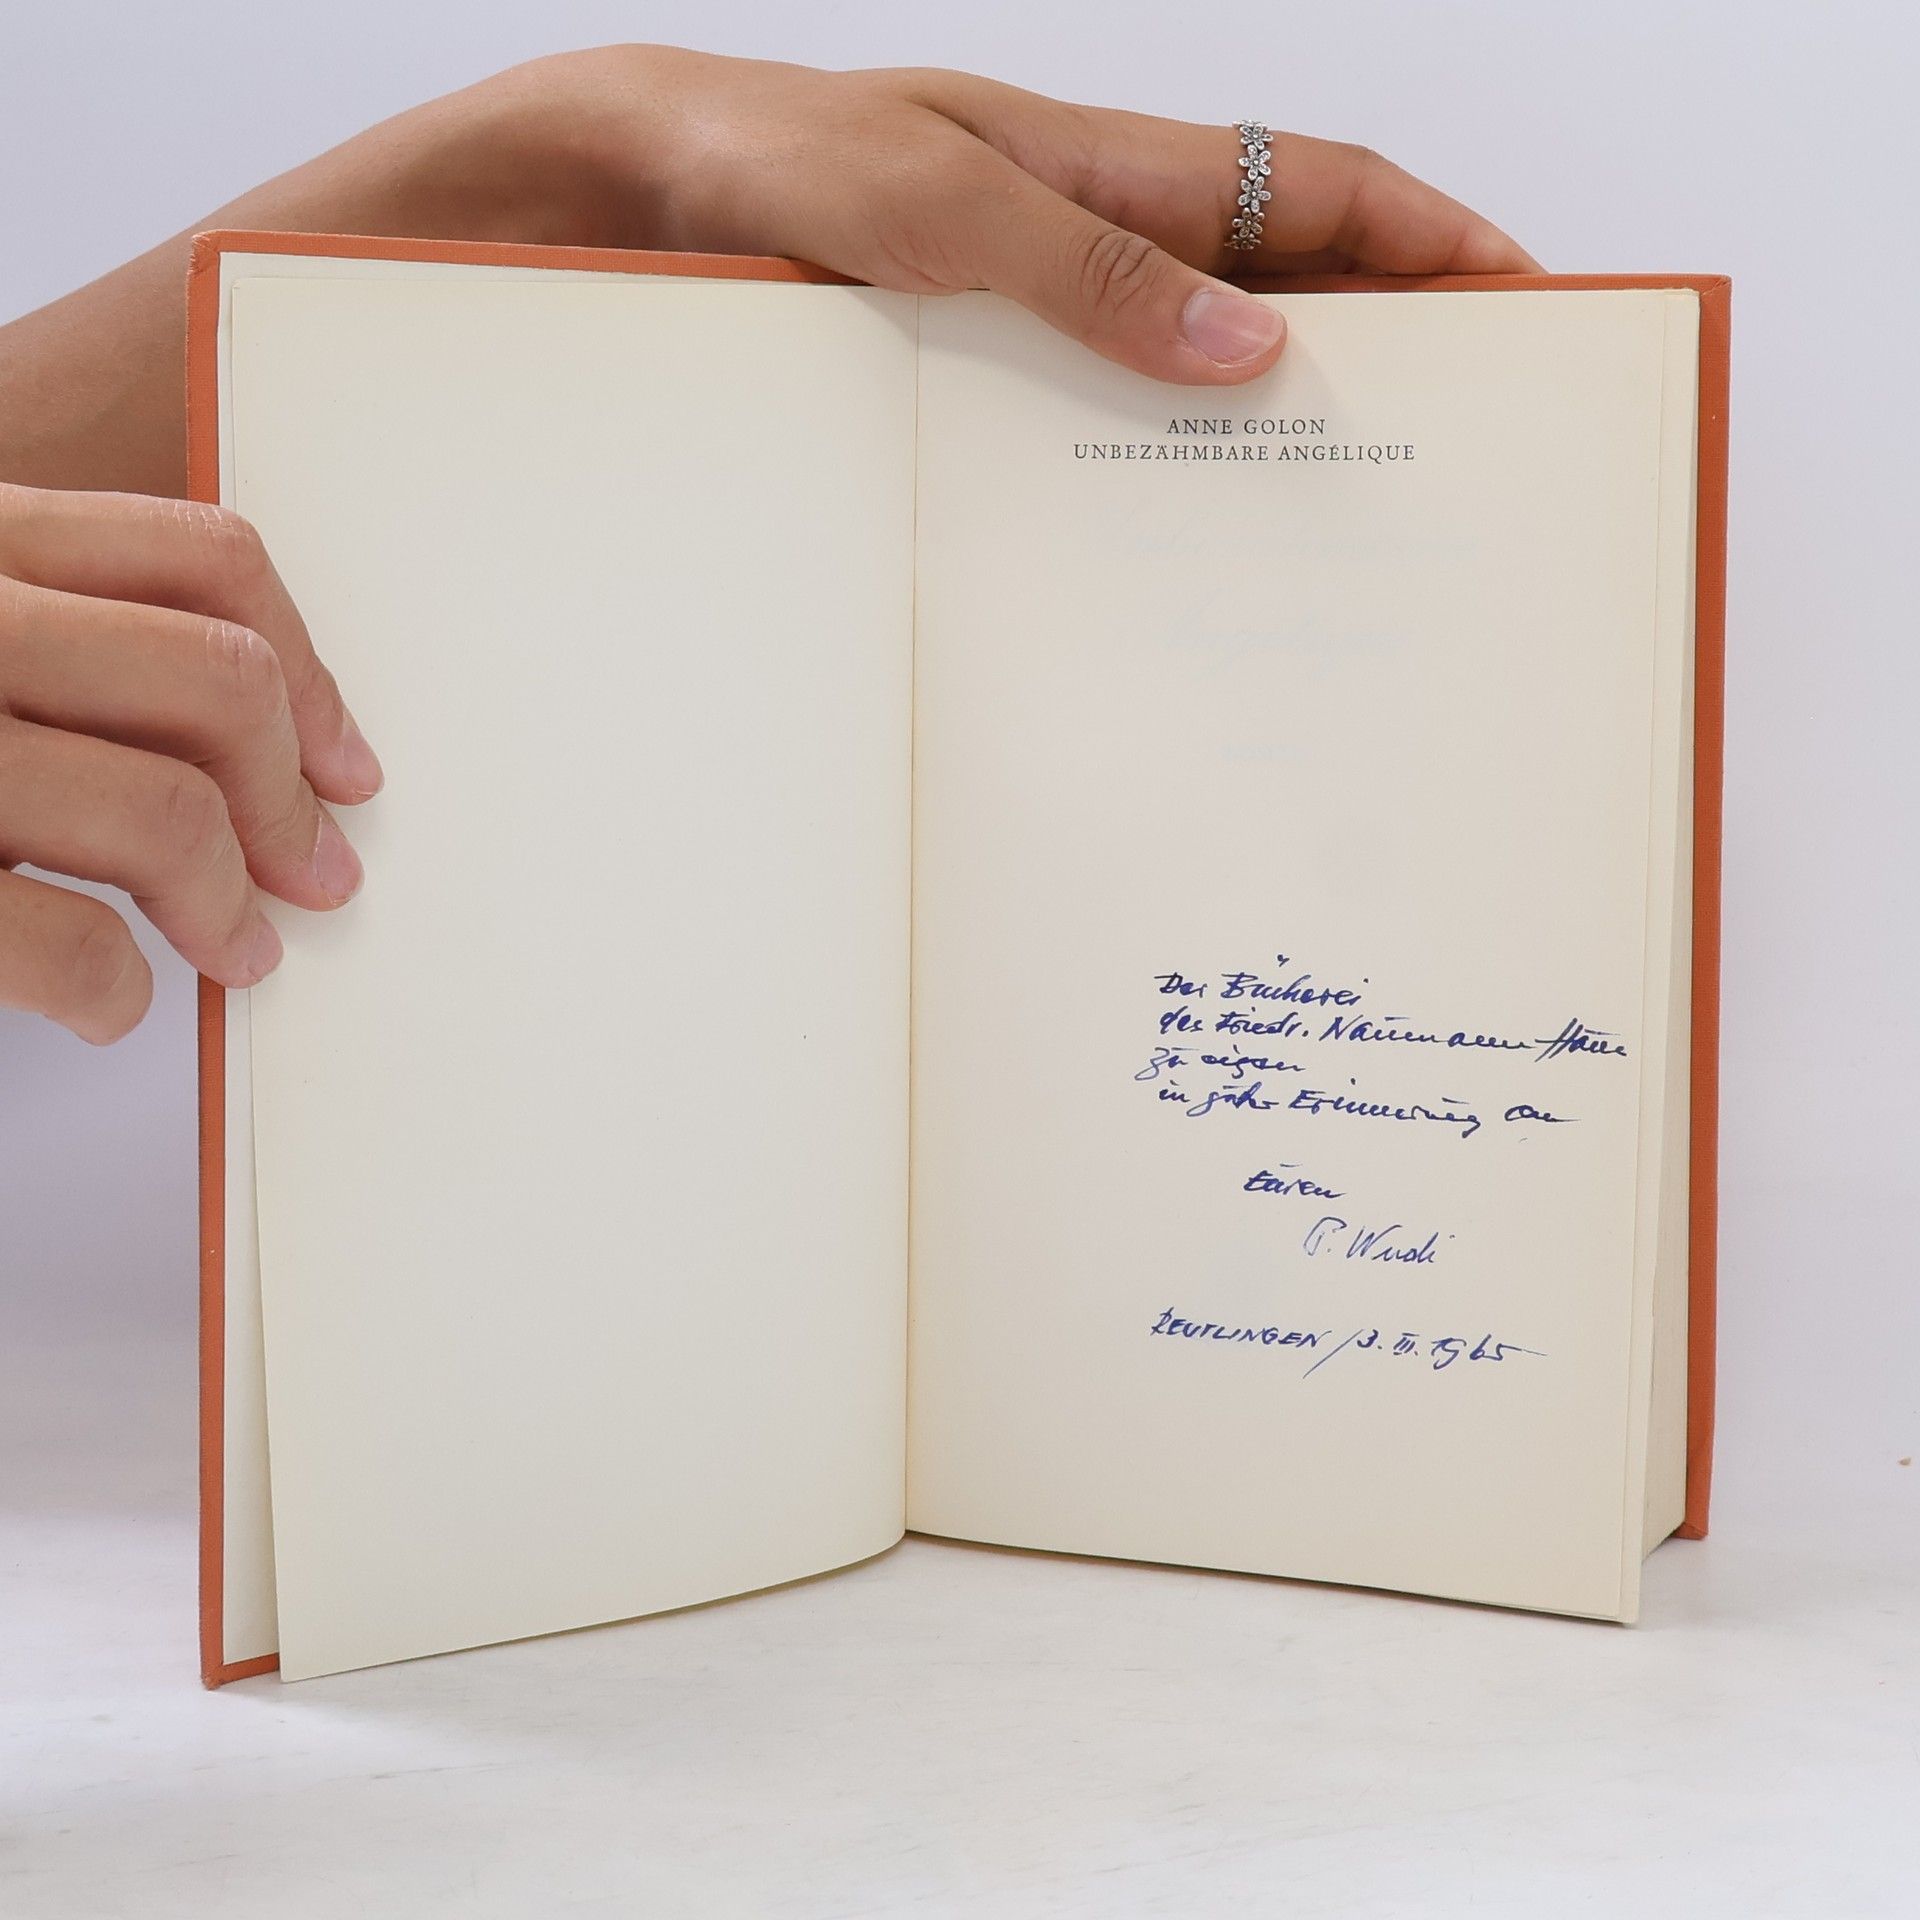 ANNE GOLON
UNBEZÄHMBARE ANGÉLIQUE
Der Bücherei
des Friedr. Naumann-Haus
zu eigen
in guter Erinnerung an
Euren
P. Wudi
REUTLINGEN / 3. III. 1965